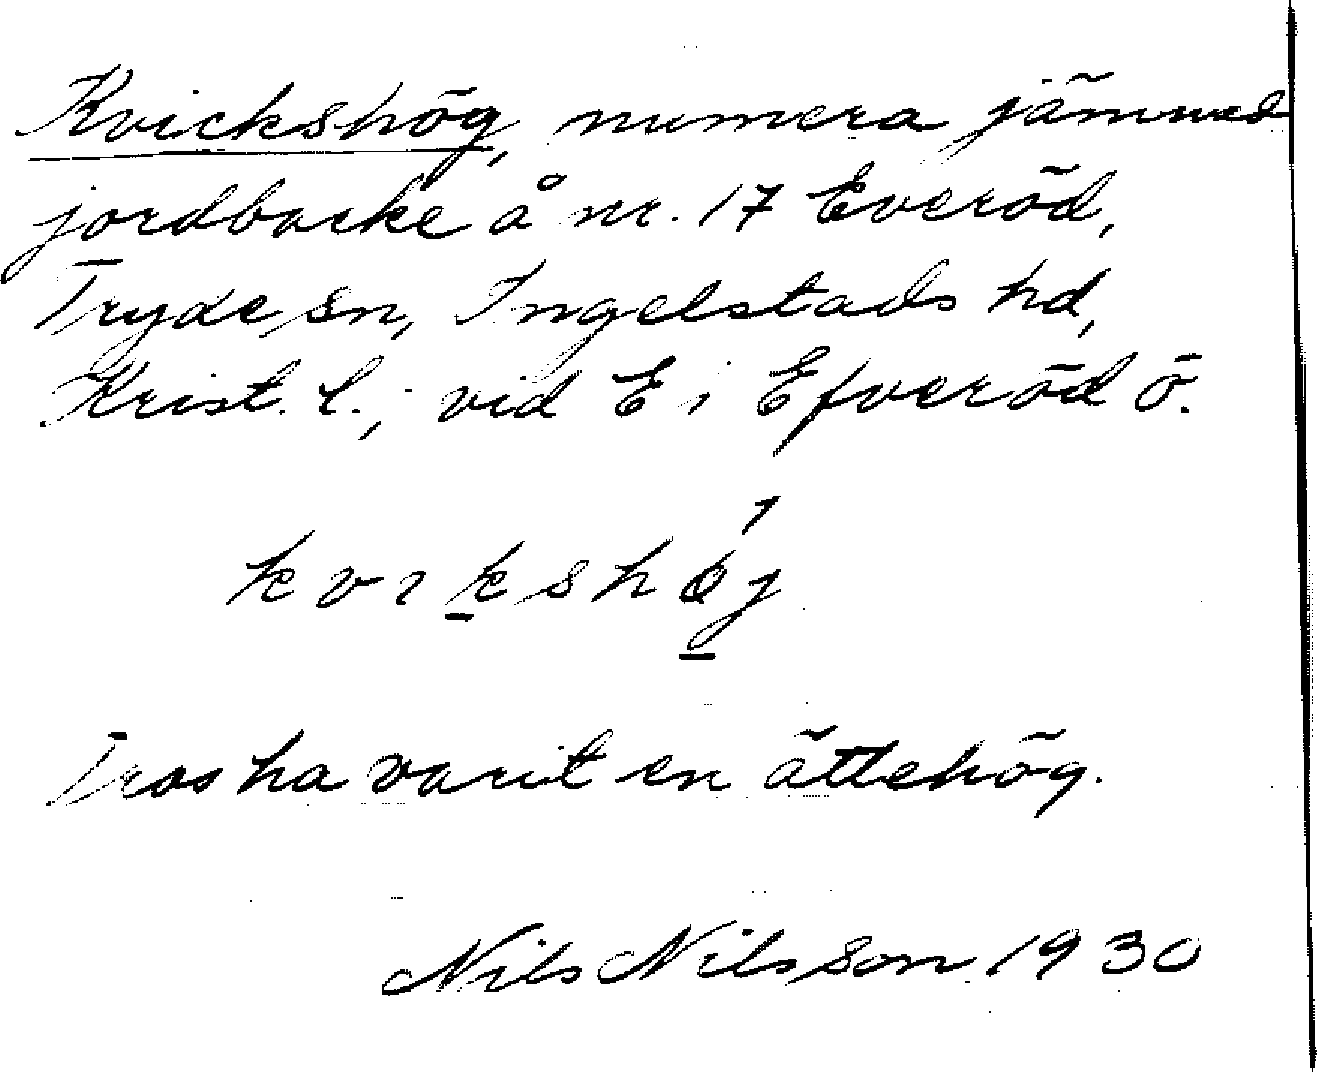 Kvickshög, numera jämnad
jordbacke å nr. 17 Everöd,
Tryde sn, Ingelstads hd,
Krist. l.; vid E i Efveröd ö.
kvikshøj
Tros ha varit en ättehög.
Nils Nilsson 1930